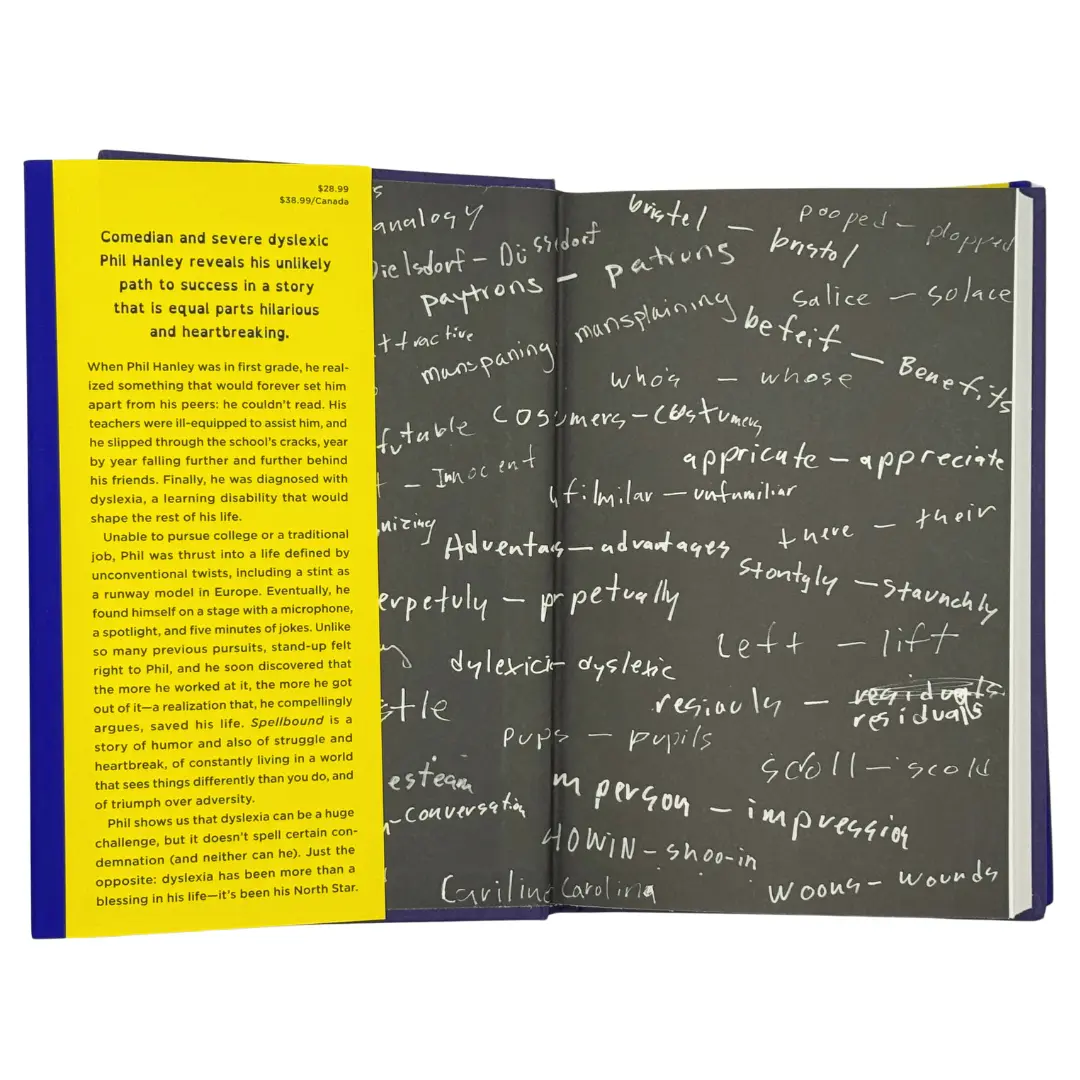 $28.99
$38.99/Canada
Comedian and severe dyslexic
Phil Hanley reveals his unlikely
path to success in a story
that is equal parts hilarious
and heartbreaking.
When Phil Hanley was in first grade, he real-
ized something that would forever set him
apart from his peers: he couldn't read. His
teachers were ill-equipped to assist him, and
he slipped through the school's cracks, year
by year falling further and further behind
his friends. Finally, he was diagnosed with
dyslexia, a learning disability that would
shape the rest of his life.
Unable to pursue college or a traditional
job, Phil was thrust into a life defined by
unconventional twists, including a stint as
a runway model in Europe. Eventually, he
found himself on a stage with a microphone,
a spotlight, and five minutes of jokes. Unlike
so many previous pursuits, stand-up felt
right to Phil, and he soon discovered that
the more he worked at it, the more he got
out of it—a realization that, he compellingly
argues, saved his life. Spellbound is a
story of humor and also of struggle and
heartbreak, of constantly living in a world
that sees things differently than you do, and
of triumph over adversity.
Phil shows us that dyslexia can be a huge
challenge, but it doesn't spell certain con-
demnation (and neither can he). Just the
opposite: dyslexia has been more than a
blessing in his life—it's been his North Star.
analogy
Dielsdorf – Düsseldorf
paytrons – patrons
ttractive
manspaning mansplaining
futable
cosumers – costumers
– Innocent
filmilar – unfamiliar
nizing
Adventags – advantages
erpetuly – perpetually
dylexicic – dyslexic
stle
pups – pupils
esteam
m person – impression
– Conversation
HOWIN – shoo-in
Cariline Carolina
bristel – bristol
pooped – plopped
salice – solace
befeif – Benefits
who's – whose
appricate – appreciate
there – their
stontgly – staunchly
left – lift
resiauly – residuals
residuals
scroll – scold
woons – wounds